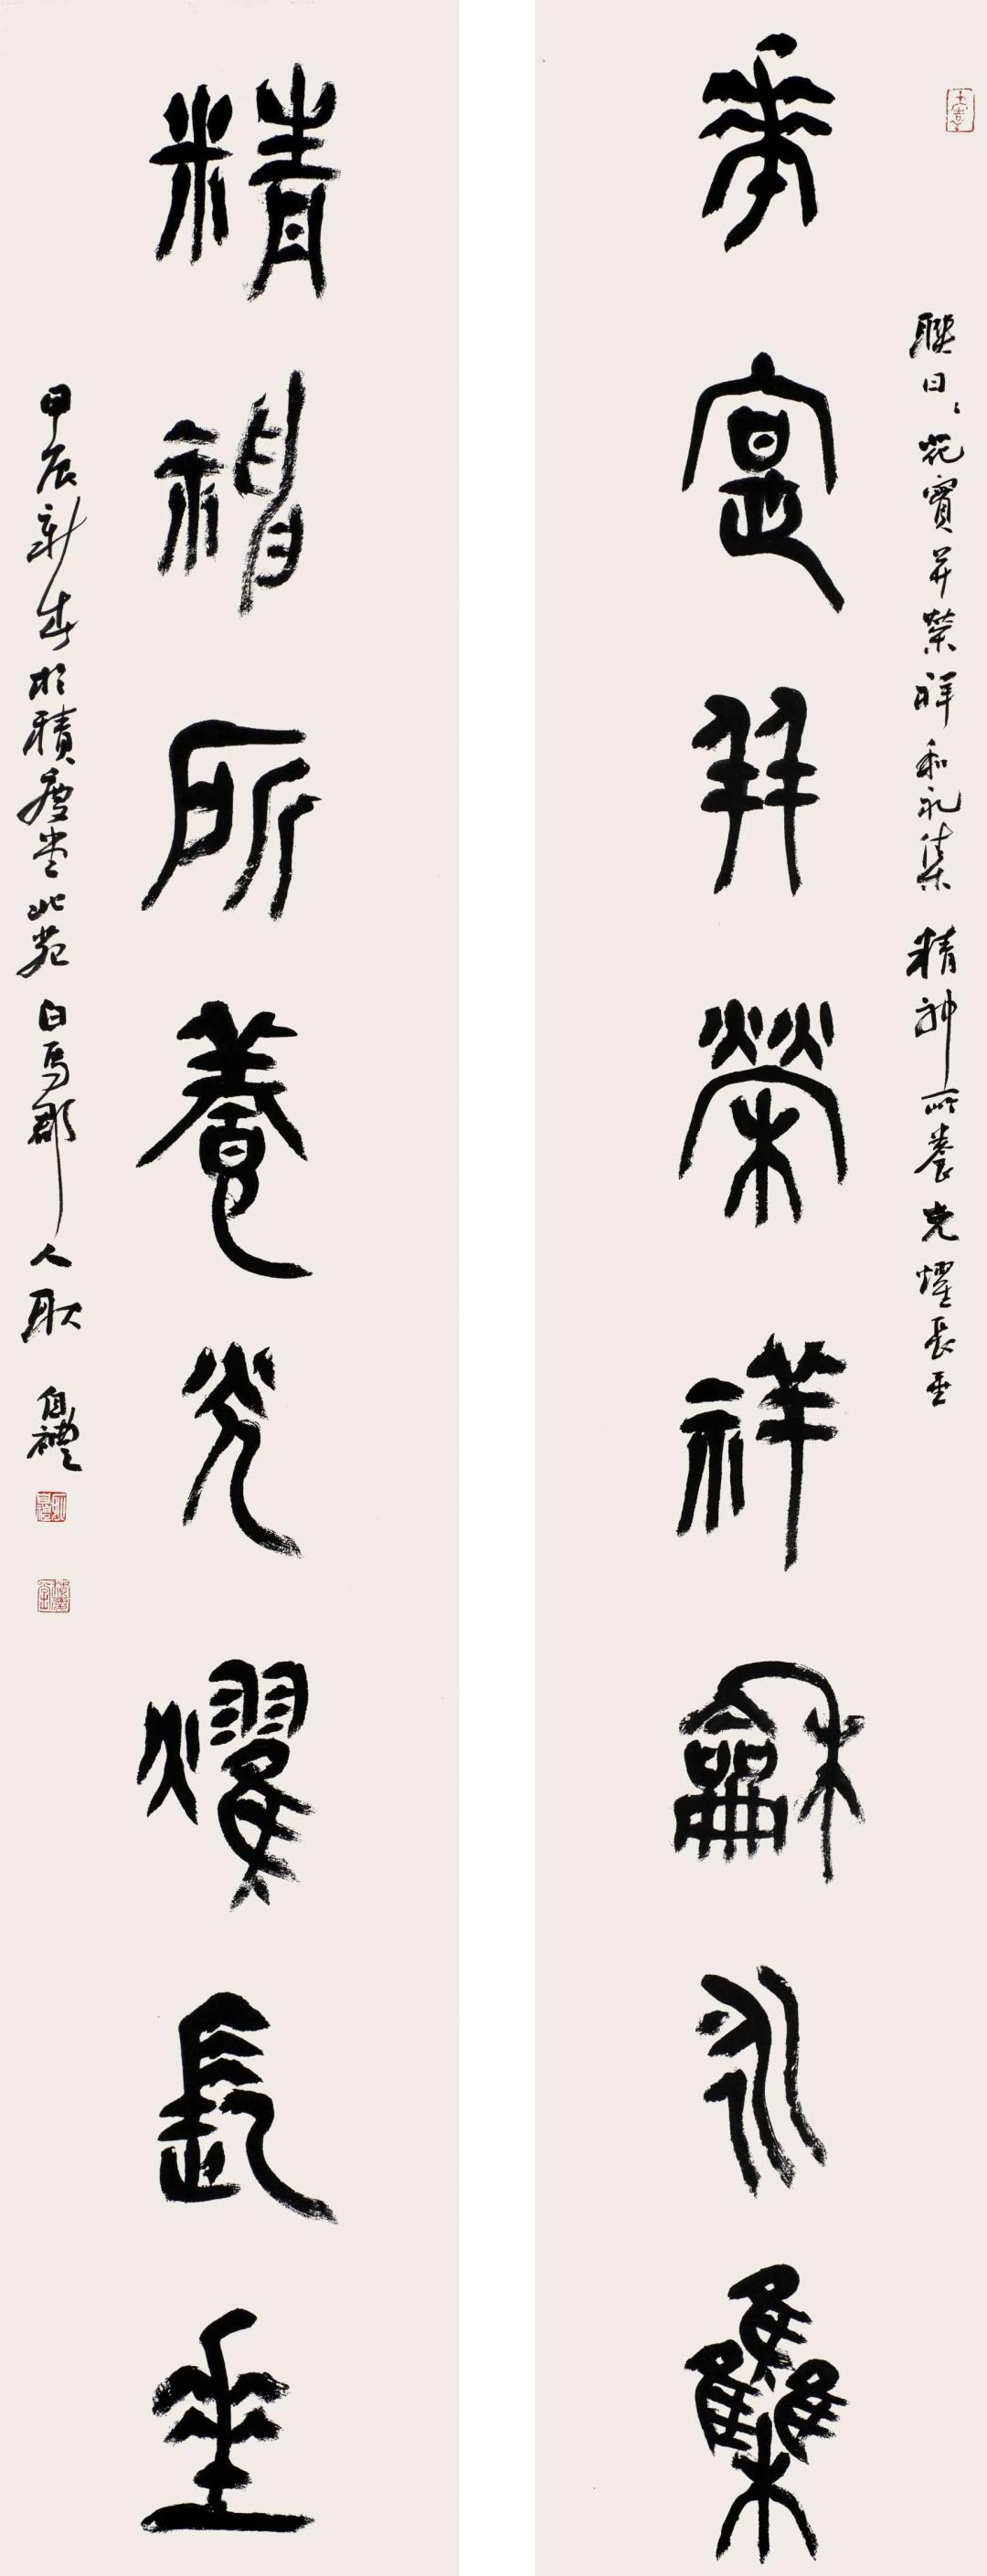 聯曰：花實并榮祥和永集 精神所養光燿長垂
華寔并榮祥龢永集
精神所養光燿長垂
甲辰新春於積慶堂北苑 白馬郡人耿自禮